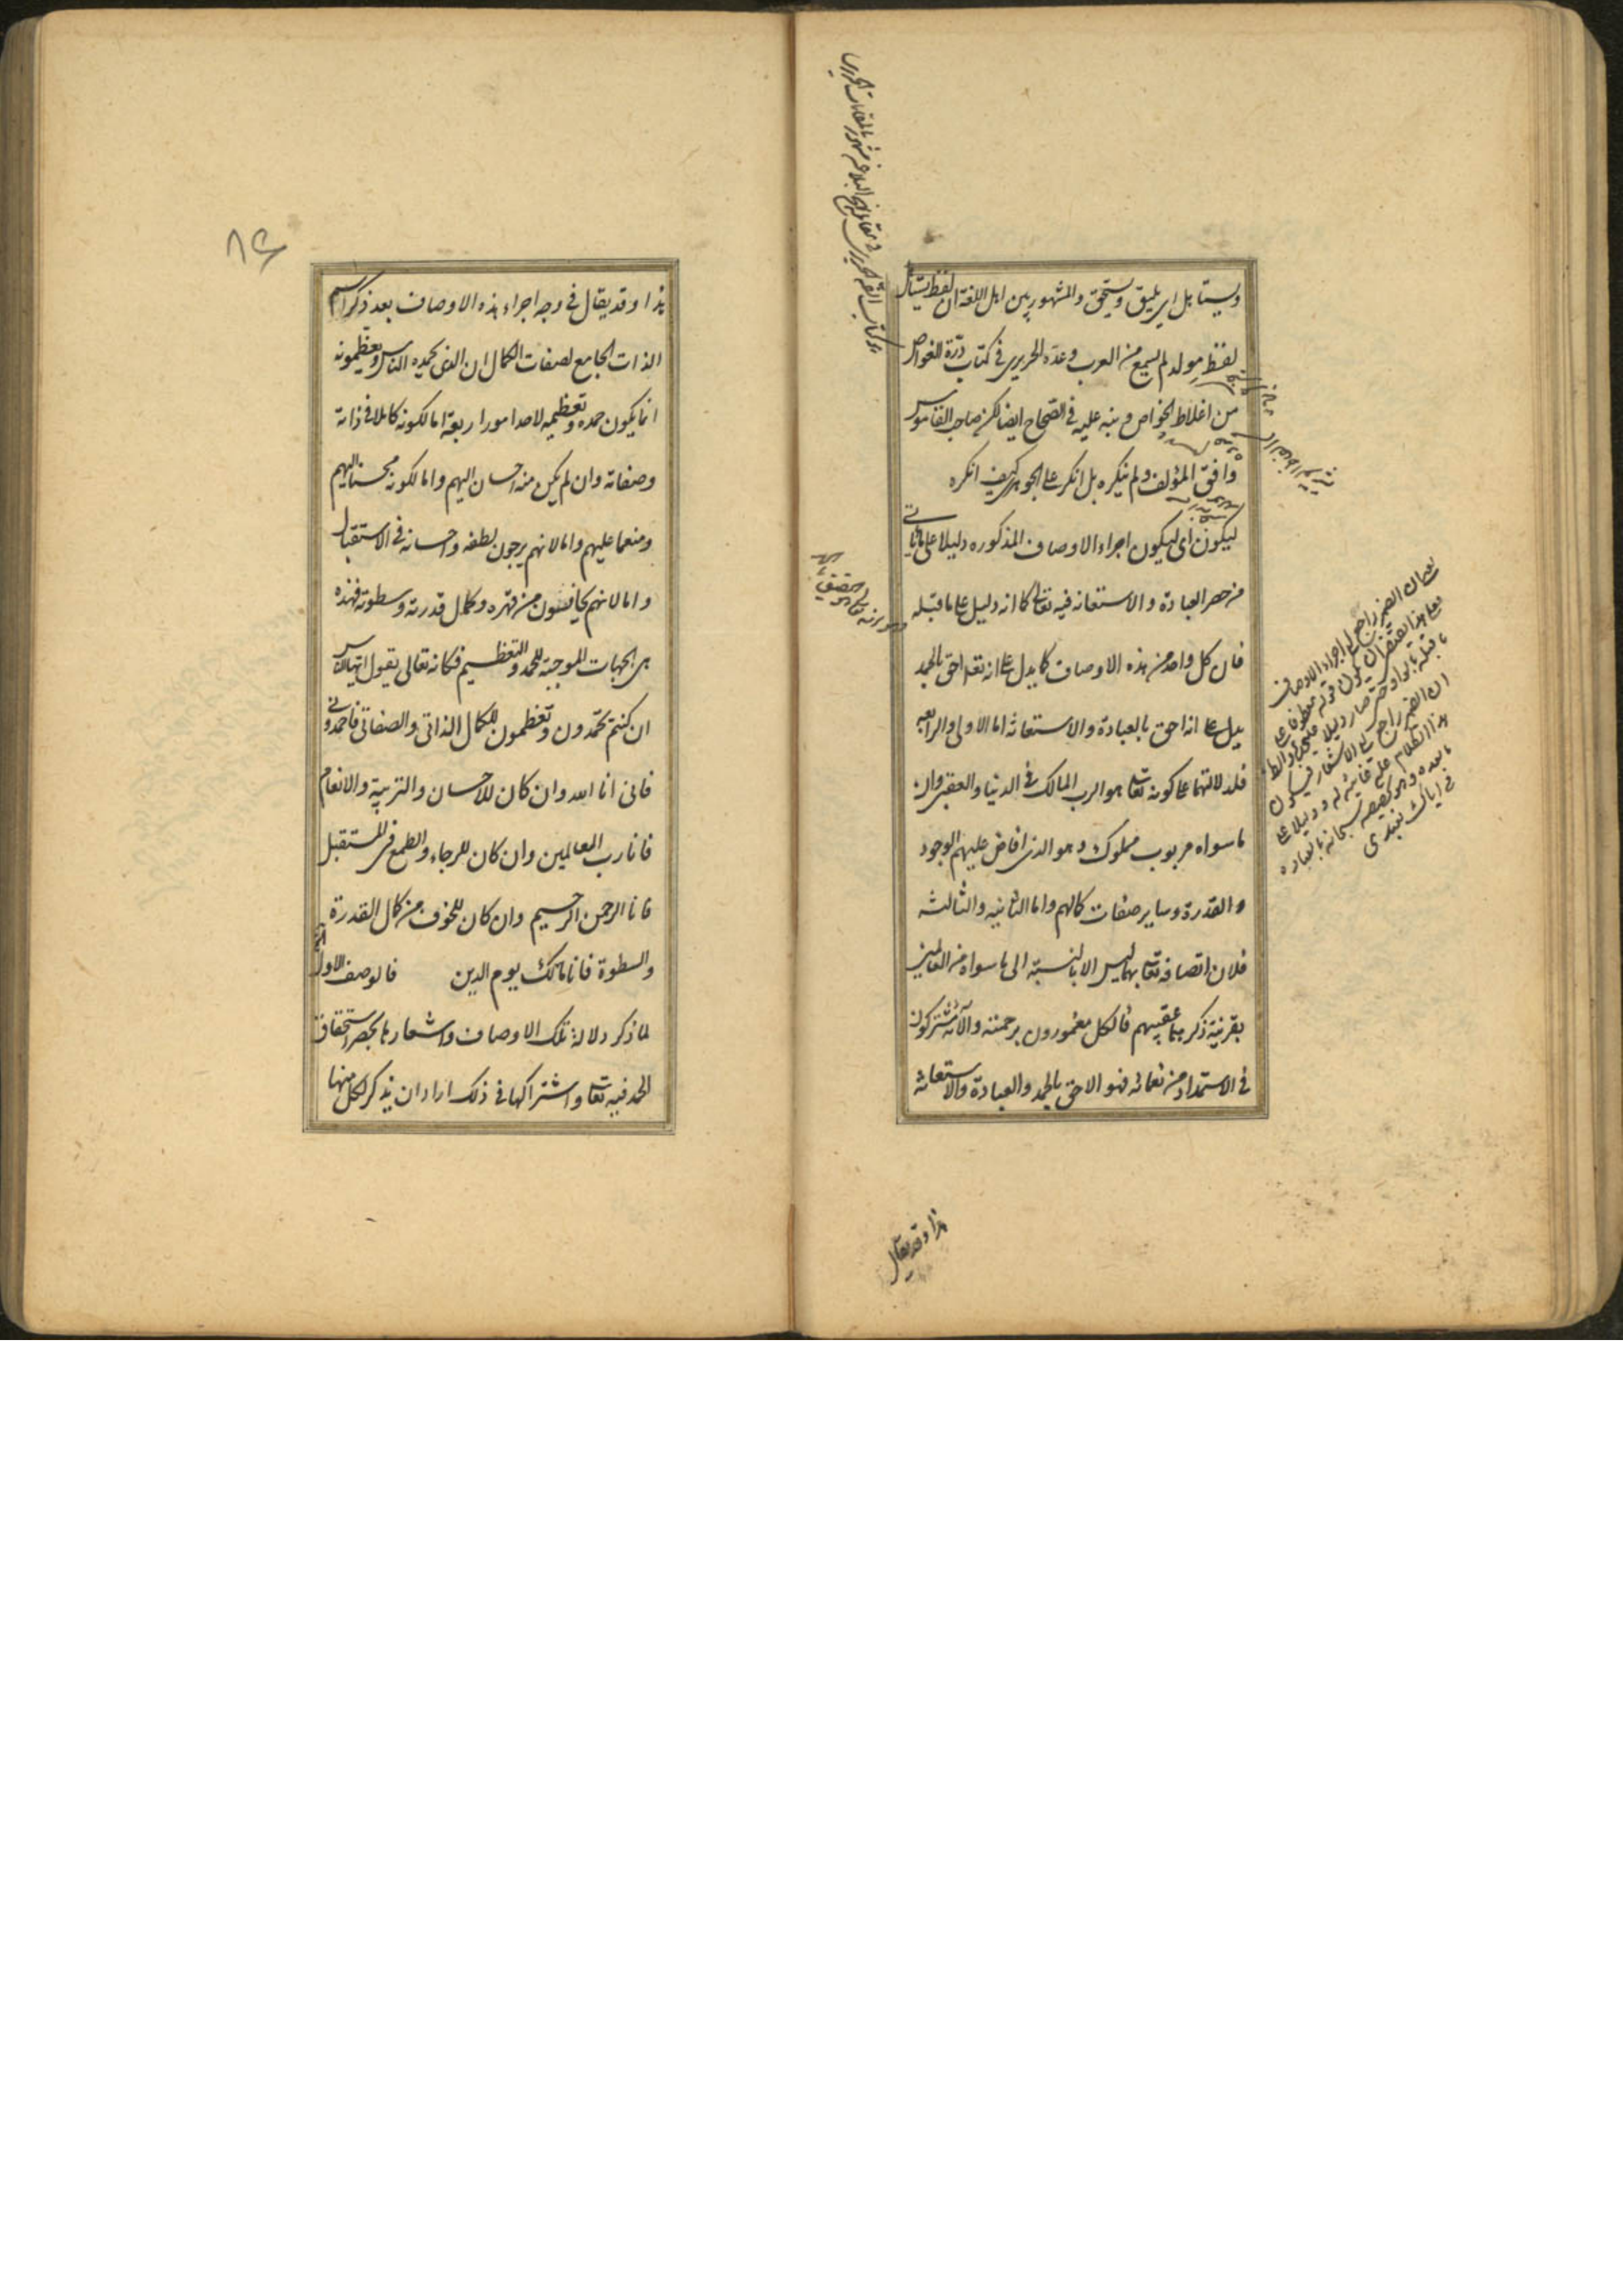 ويستاهل اى يليق ويستحق والمشهور بين اهل اللغة ان لفظ يستاهل
لفظ مولد لم يسمع من العرب وعده الحريرى فى كتاب درة الغواص
من اغلاط الخواص ونبه عليه فى الصحاح ايضا لكن صاحب القاموس
وافق المؤلف ولم ينكره بل انكر على الجوهرى كيف انكره
ليكون اى ليكون اجراء الاوصاف المذكوره دليلا على ما ياتى
من حصر العبادة والاستعانه فيه تعالى كما انه دليل على ما قبله
فان كل واحد من هذه الاوصاف كما يدل على انه تعالى احق بالحمد
يدل على انه احق بالعبادة والاستعانة اما الاولى والرابعه
فلدلالتهما على كونه تعالى هو الرب المالك فى الدنيا والعقبى وان
ما سواه مربوب مملوك وهو الذى افاض عليهم الوجود
والقدرة وساير صفات كمالهم واما الثانيه والثالثه
فلان اتصافه تعالى بهما ليس الا بالنسبة الى ما سواه من العالمين
بقرينة ذكرهما عقيبهم فالكل مغمورون برحمته وآلائه مشتركون
فى الاستمداد من نعمائه فهو الاحق بالحمد والعبادة والاستعانة
هذا وقد يقال
ان الضمير راجع الى الاشعار فيكون
ما بعده وهو تخصيصه سبحانه بالعباده
فى اياك نعبدى
٨٤
هذا وقد يقال فى وجه اجراء هذه الاوصاف بعد ذكر اسم
الذات الجامع لصفات الكمال ان الذى يحمده الناس ويعظمونه
انما يكون حمده وتعظيمه لاحد امور اربعة اما لكونه كاملا فى ذاته
وصفاته وان لم يكن منه احسان اليهم واما لكونه محسنا اليهم
ومنعما عليهم واما لانهم يرجون لطفه واحسانه فى الاستقبال
واما لانهم يخافون من قهره وكمال قدرته وسطوته فهذه
هى الجهات الموجبة للحمد والتعظيم فكانه تعالى يقول ايها الناس
ان كنتم تحمدون وتعظمون للكمال الذاتى والصفاتى فاحمدونى
فانى انا الله وان كان للاحسان والتربية والانعام
فانا رب العالمين وان كان للرجاء والطمع فى المستقبل
فانا الرحمن الرحيم وان كان للخوف من كمال القدرة
والسطوة فانا مالك يوم الدين فالوصف الاول
لما ذكر دلالة تلك الاوصاف واشعارها بحصر استحقاق
الحمد فيه تعالى واشتراكها فى ذلك اراد ان يذكر لكل منها